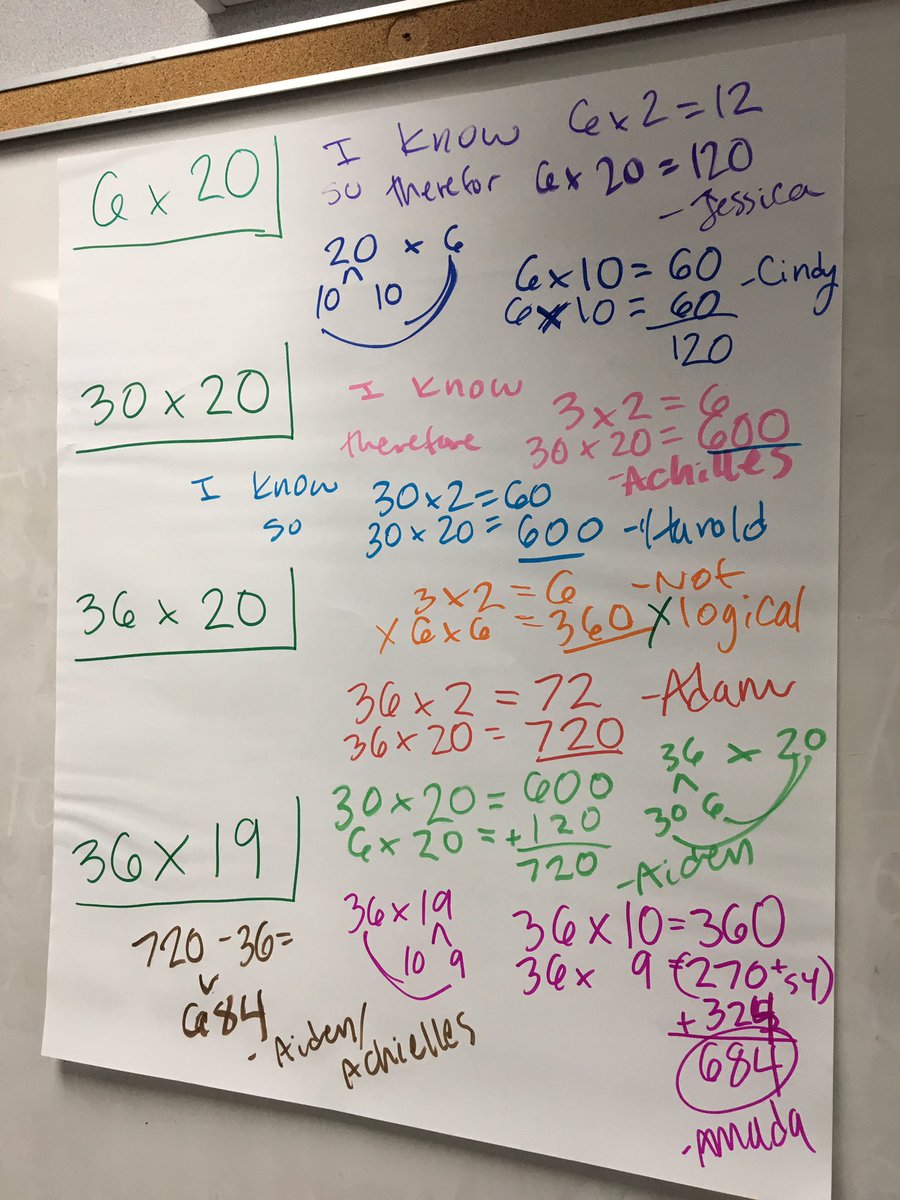 6 x 20
I know 6 x 2 = 12
so therefor 6 x 20 = 120
- Jessica
20 x 6
10 10
6 x 10 = 60 - Cindy
6 x 10 = 60
120
30 x 20
I know 3 x 2 = 6
therefore 30 x 20 = 600
- Achilles
I know 30 x 2 = 60
so 30 x 20 = 600 - Harold
36 x 20
3 x 2 = 6 - Not
x 6 x 6 = 360 x logical
36 x 2 = 72 - Adam
36 x 20 = 720
30 x 20 = 600
6 x 20 = + 120
720
36 x 20
30 6
- Aiden
36 x 19
720 - 36 =
684
- Aiden/
Achielles
36 x 19
10 9
36 x 10 = 360
36 x 9 = (270 + 54)
+ 324
684
- Amada